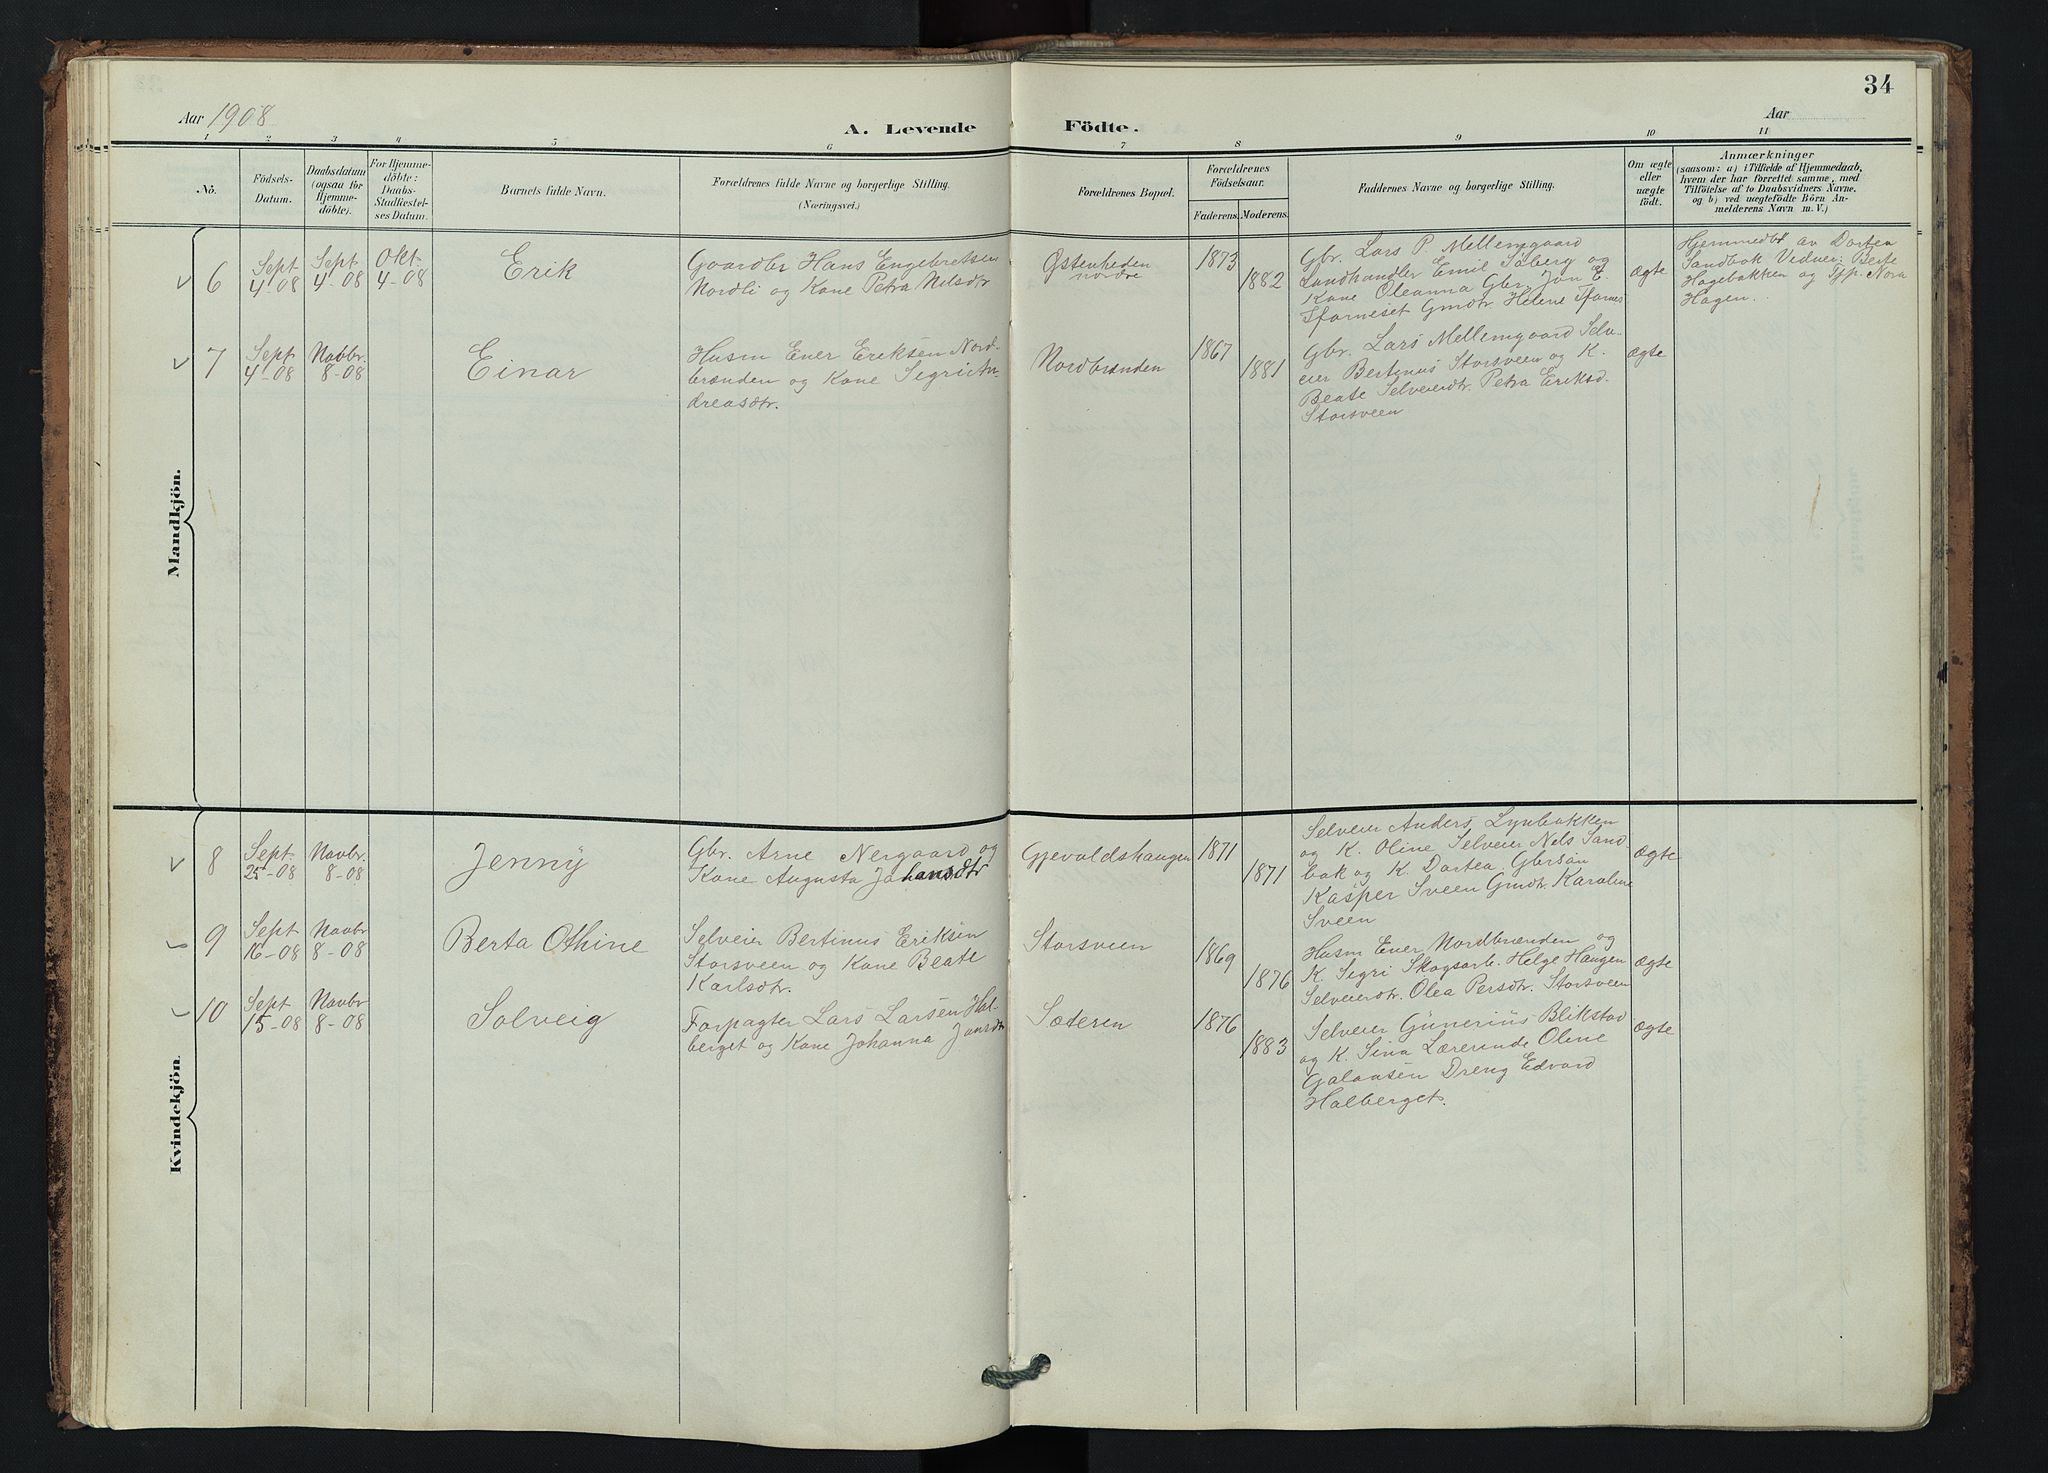 34
Aar 1908
A. Levende Födte.
Aar
1 2 3 4 5 6 7 8 9 10 11
No.
Födsels-
Datum.
Daabsdatum
(ogsaa for
Hjemme-
döbte).
For Hjemme-
döbte:
Daabs-
Stadfæstel-
ses Datum.
Barnets fulde Navn.
Forældrenes fulde Navne og borgerlige Stilling.
(Næringsvei.)
Forældrenes Bopæl.
Forældrenes
Födselsaar.
Faderens. Moderens.
Faddernes Navne og borgerlige Stilling.
Om ægte
eller
uægte
födt.
Anmærkninger
(saasom: a) i Tilfælde af Hjemmedaab,
hvem der har forrettet samme, med
Tilföielse af to Daabsvidners Navne,
og b) ved uægtefödte Börn An-
melderens Navn m. V.)
Mandkjön.
6
Sept
4-08
Sept
4-08
Okt-
4-08
Erik
Gaardbr Hans Engebretsen
Nordli og Kone Petra Nilsdtr
Østenheden
nordre
1873
1882
Gbr. Lars P. Mellemgaard
Landhandler Emil Søberg og
Kone Oleanna Gbr. Jon E.
Tfarneset Gmdtr. Helene Tfarnes
ægte
Hjemmedbt av Dortea
Sandbak Vidner: Berte
Hagebakken og Jjp. Nora
Hagen.
7
Sept
4-08
Novbr.
8-08
Einar
Husm Ener Eriksen Nord-
brænden og Kone Segri An-
dreasdtr.
Nordbrænden
1867
1881
Gbr. Lars Mellemgaard Selv-
eier Bertinus Storsveen og K.
Beate Selveierdtr. Petra Eriksd.
Storsveen
ægte
Kvindekjön.
8
Sept-
25-08
Novbr.
8-08
Jenny
Gbr. Arne Nergaard og
Kone Augusta Johansdtr
Gjevaldshaugen
1871
1871
Selveier Anders Lynbakken
og K. Oline Selveier Nels Sand-
bak og K. Dortea Gbrsøn
Kasper Sveen Gmdtr. Karoline
Sveen
ægte
9
Sept
16-08
Novbr
8-08
Berta Othine
Selveier Bertinus Eriksen
Storsveen og Kone Beate
Karlsdtr.
Storsveen
1869
1876
Husm Ener Nordbrænden og
K. Segri Skogsarb. Helge Haugen
Selveierdtr. Olea Persdtr. Storsveen
ægte
10
Sept
15-08
Novbr
8-08
Solveig
Forpagter Lars Larsen Hal-
berget og Kone Johanna Jonsdtr
Sæteren
1876
1883
Selveier Gunerius Blikstad
og K. Sina Lærerinde Oline
Galaasen Dreng Edvard
Halberget.
ægte